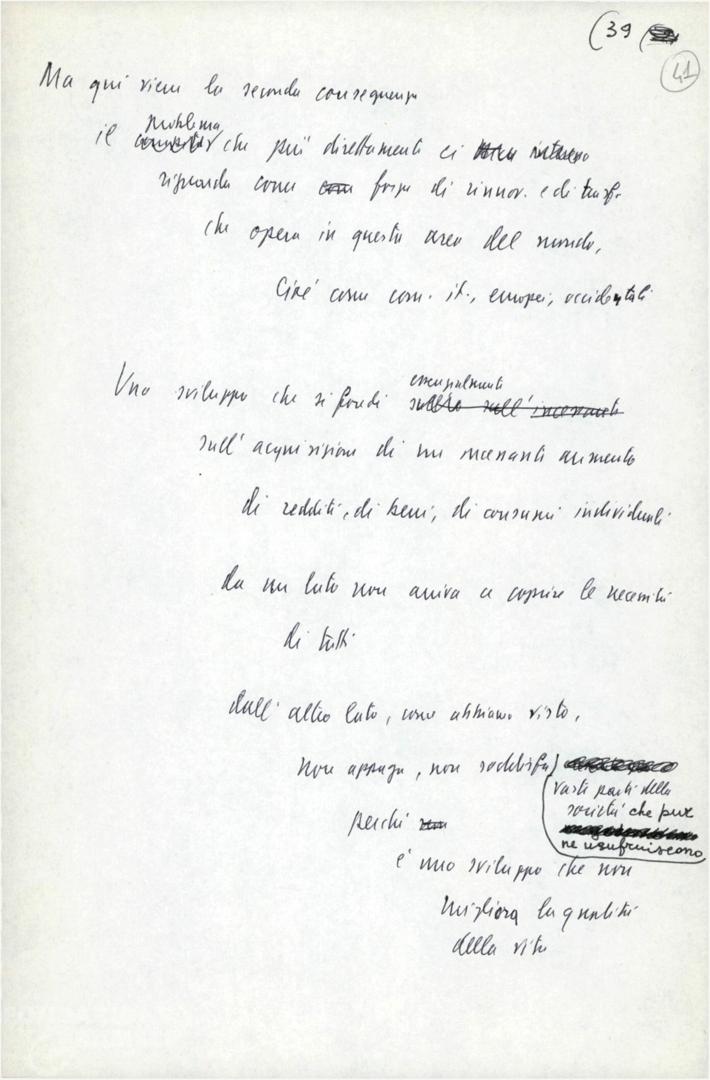 (39
41
Ma qui viene la seconda conseguenza
problema
il che più direttamente ci
riguarda come forza di rinnov. e di trasf.
che opera in questa area del mondo,
Cioè come com. it., europei, occidentali
essenzialmente
Uno sviluppo che si fondi sull'incessante
sull'acquisizione di un incessante aumento
di redditi, di beni, di consumi individuali
da un lato non arriva a coprire le necessità
di tutti
dall'altro lato, come abbiamo visto,
non appaga, non soddisfa)
vaste parti della
società che pur
ne usufruiscono
perché
è uno sviluppo che non
migliora la qualità
della vita